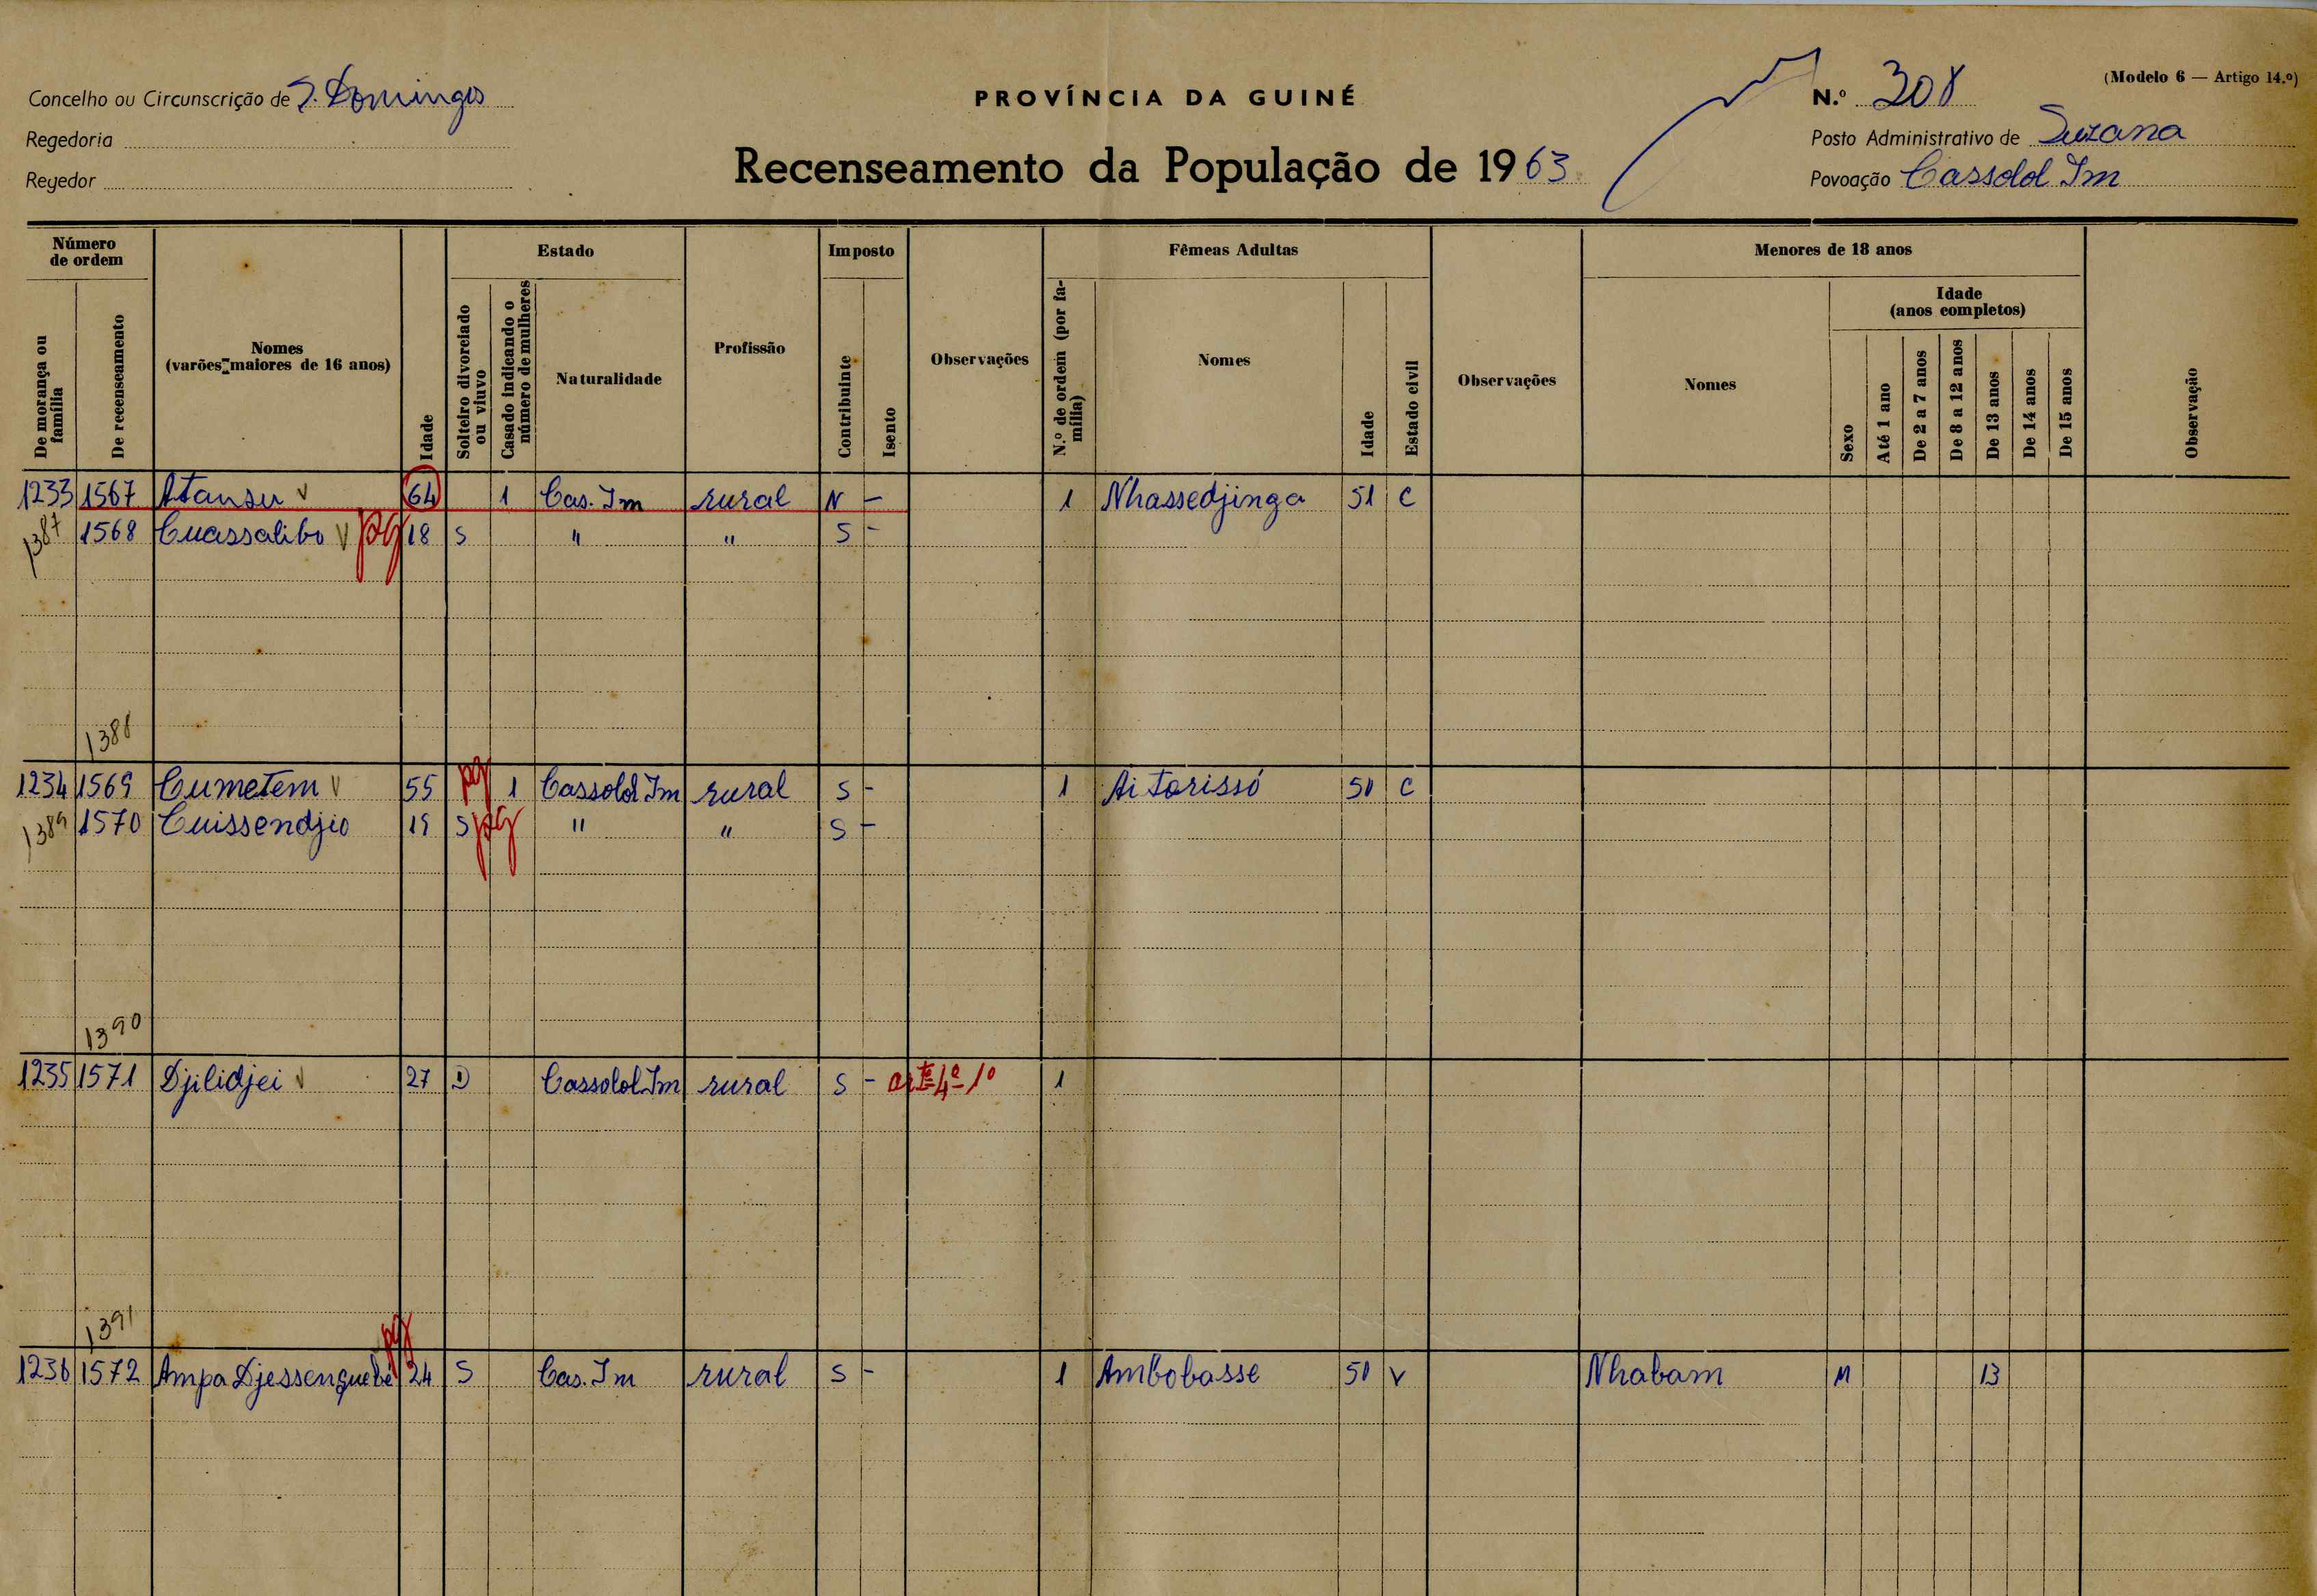 (Modelo 6 — Artigo 14.º)
Concelho ou Circunscrição de S. Domingos
PROVÍNCIA DA GUINÉ
N.º 308
Regedoria
Posto Administrativo de Suzana
Regedor
Recenseamento da População de 1963
Povoação Cassolol Im
Número de ordem
Estado
Imposto
Fêmeas Adultas
Menores de 18 anos
De morança ou família
De recenseamento
Nomes (varões maiores de 16 anos)
Idade
Solteiro divorciado ou viuvo
Casado indicando o número de mulheres
Naturalidade
Profissão
Contribuinte
Isento
Observações
N.º de ordem (por família)
Nomes
Idade
Estado civil
Observações
Nomes
Idade (anos completos)
Sexo
Até 1 ano
De 2 a 7 anos
De 8 a 12 anos
De 13 anos
De 14 anos
De 15 anos
Observação
1233 1567 Atansu V 64 1 Cas. Im rural N - 1 Nhassedjinga 51 C
1387 1568 Cuassalibo V pg 18 S " " S -
1388
1234 1569 Cumetem V 55 pg 1 Cassolol Im rural S - 1 Ai Torissó 50 C
1389 1570 Cuissendjio 19 S pg " " S -
1390
1235 1571 Djilidjei V 27 D Cassolol Im rural S - artº 4º 1º 1
1391
pg
1236 1572 Ampa Djessenguebé 24 S Cas. Im rural S - 1 Ambobasse 50 V Nhabam M 13